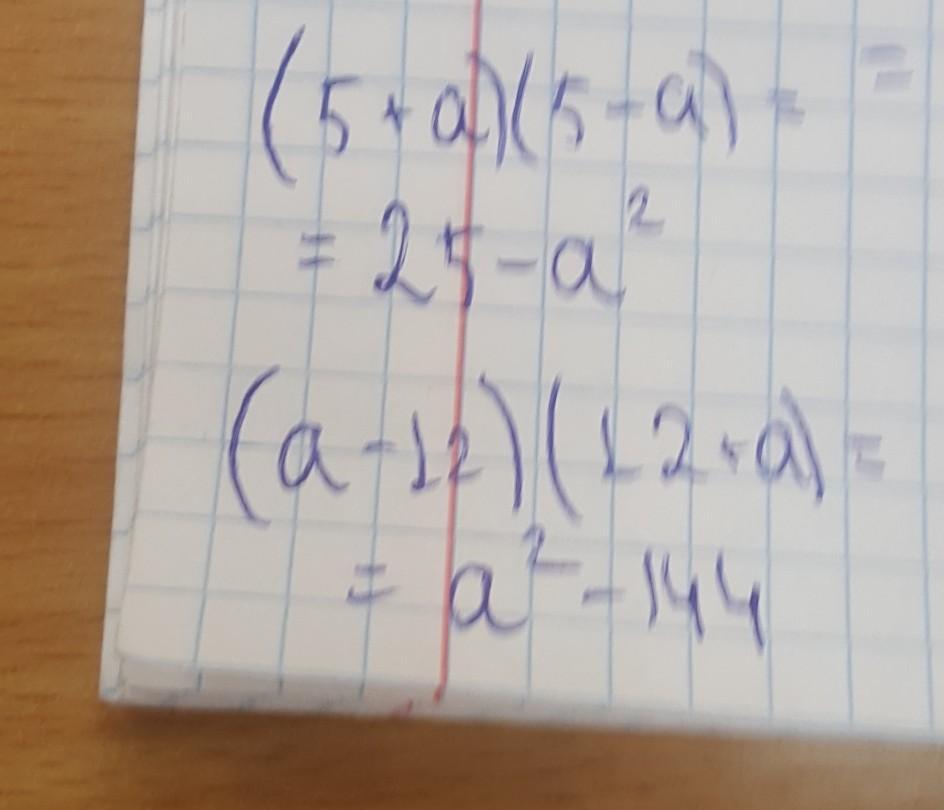 (5+a)(5-a) = =
= 25-a²
(a-12)(12+a) =
= a² - 144